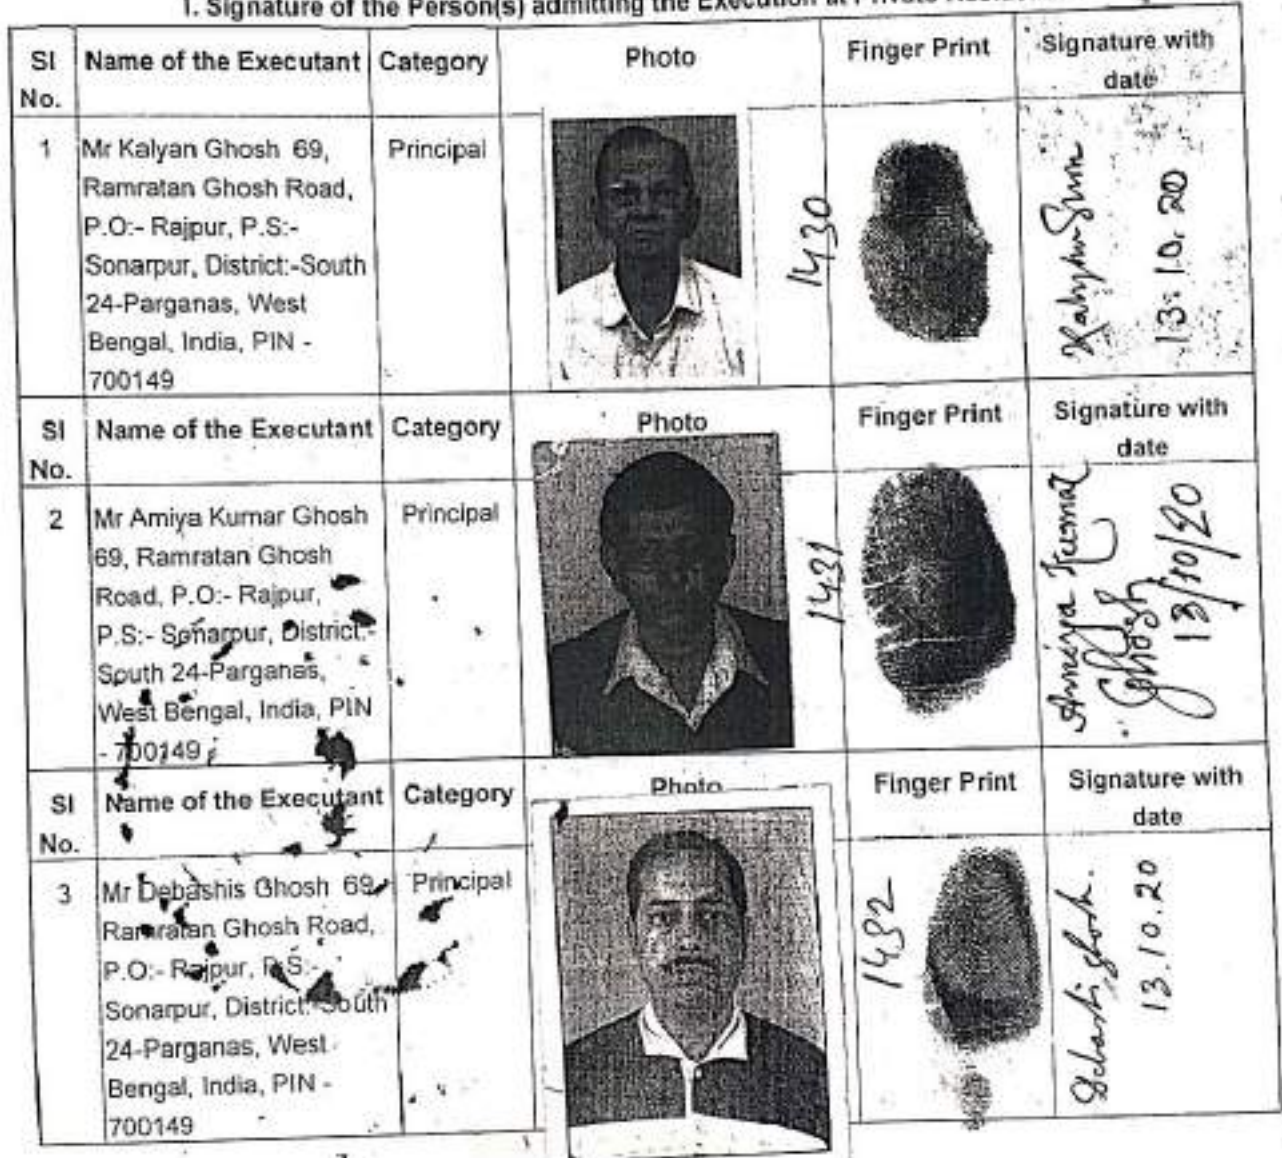 I. Signature of the Person(s) admitting the Execution at Private
Sl No. Name of the Executant Category Photo Finger Print Signature with date
1 Mr Kalyan Ghosh 69,
Ramratan Ghosh Road,
P.O:- Rajpur, P.S:-
Sonarpur, District:-South
24-Parganas, West
Bengal, India, PIN -
700149
Principal
1430
13.10.20
Sl No. Name of the Executant Category Photo Finger Print Signature with date
2 Mr Amiya Kumar Ghosh
69, Ramratan Ghosh
Road, P.O:- Rajpur,
P.S:- Sonarpur, District:-
South 24-Parganas,
West Bengal, India, PIN
- 700149
Principal
1431
Amiya Kumar
Ghosh
13/10/20
Sl No. Name of the Executant Category Photo Finger Print Signature with date
3 Mr Debashis Ghosh 69,
Ramratan Ghosh Road,
P.O:- Rajpur, P.S:-
Sonarpur, District:-South
24-Parganas, West
Bengal, India, PIN -
700149
Principal
1432
Debashis Ghosh.
13.10.20